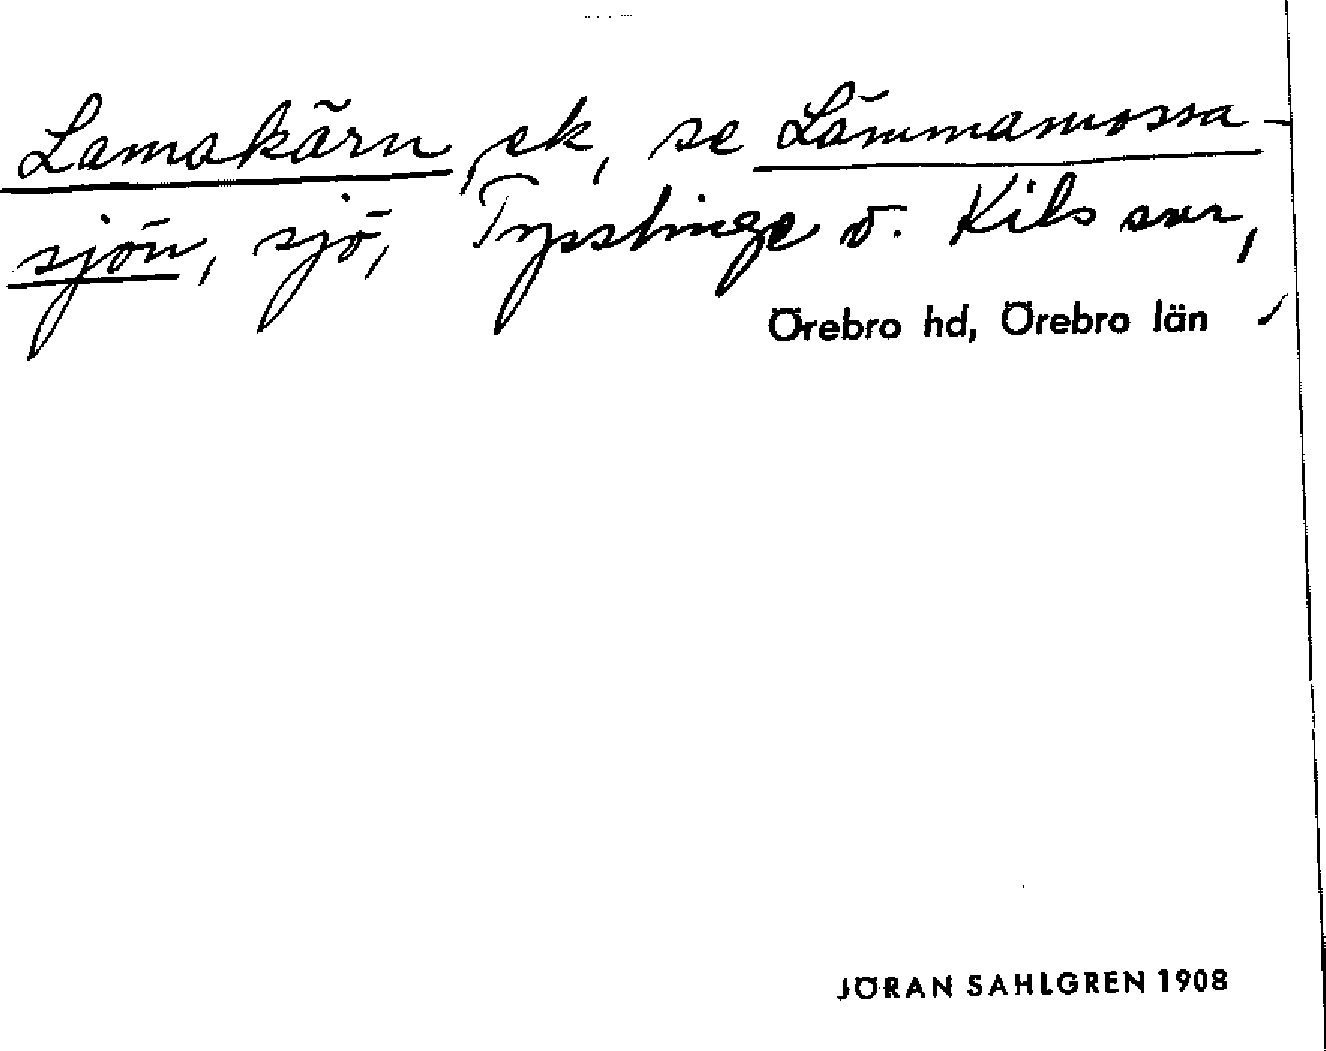 Lamakärn, ek, se Lämmamossa-
sjön, sjö, Tysslinge o. Kils snr,
Örebro hd, Örebro län
JÖRAN SAHLGREN 1908